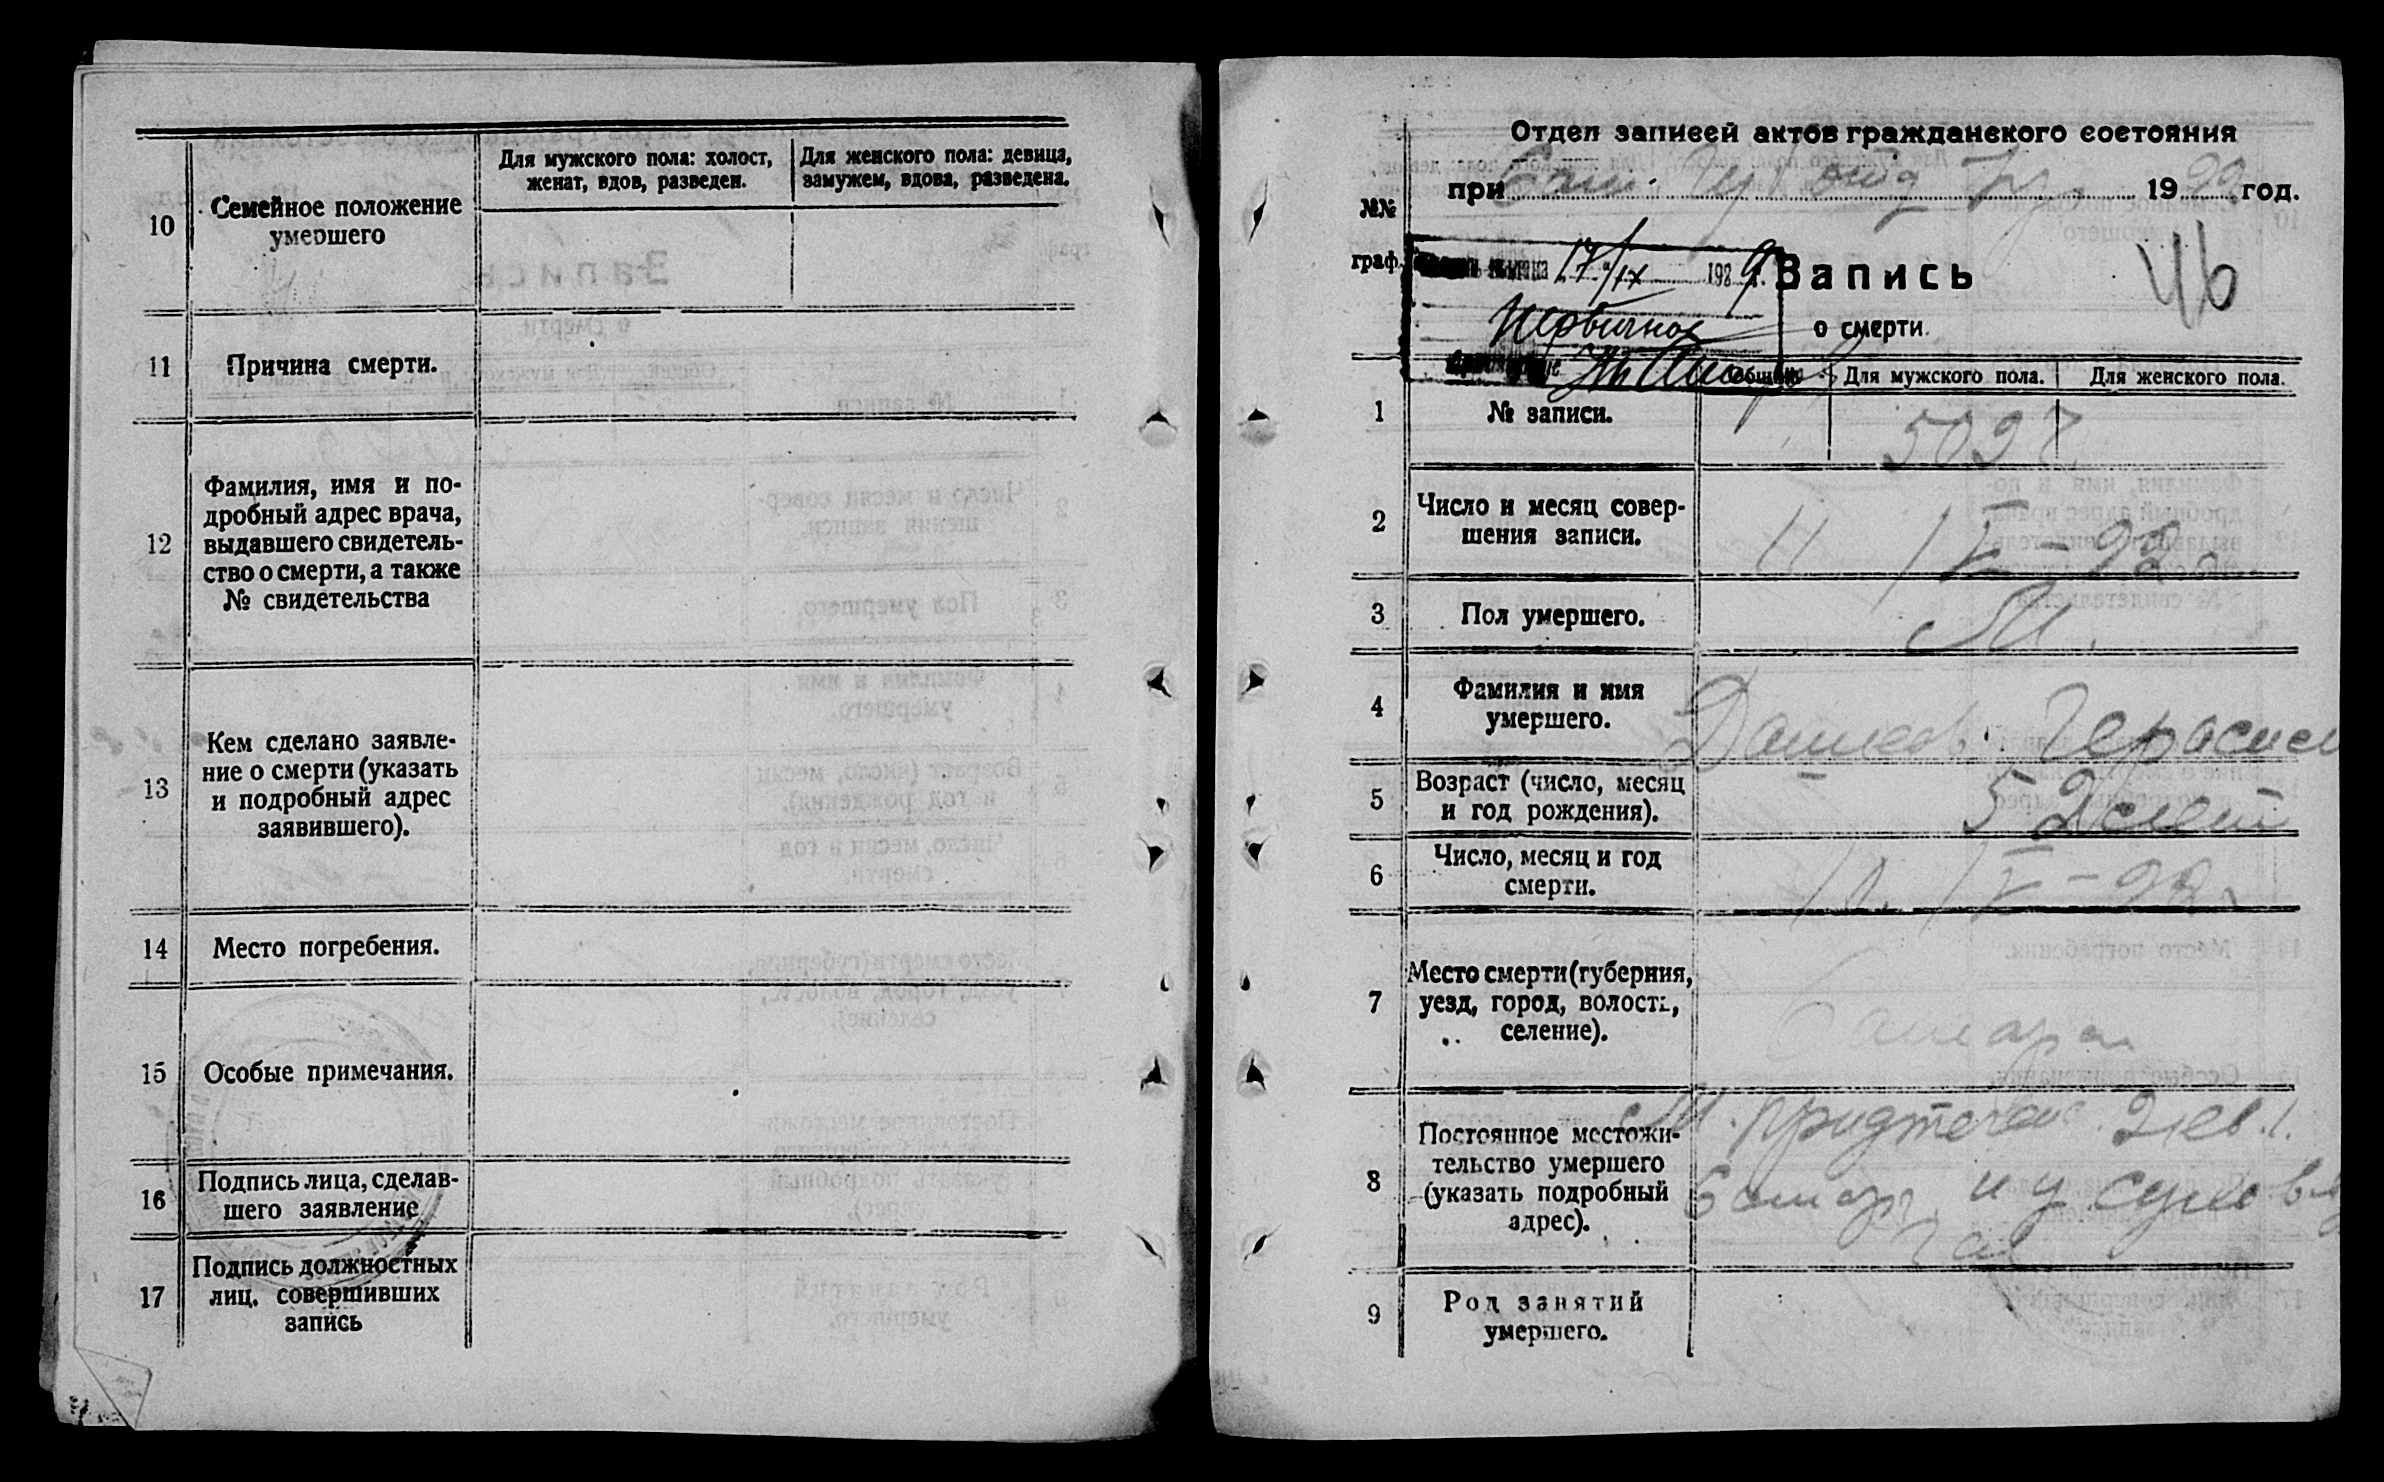 10
Семейное положение
умершего
Для мужского пола: холост,
женат, вдов, разведен.
Для женского пола: девица,
замужем, вдова, разведена.
11
Причина смерти.
12
Фамилия, имя и по-
дробный адрес врача,
выдавшего свидетель-
ство о смерти, а также
№ свидетельства
13
Кем сделано заявле-
ние о смерти (указать
и подробный адрес
заявившего).
14
Место погребения.
15
Особые примечания.
16
Подпись лица, сделав-
шего заявление
17
Подпись должностных
лиц. совершивших
запись
Отдел записей актов гражданского состояния
при 19 22 год.
№№
граф.
17/IX 1929
Первичное
Запись
о смерти.
46
Для мужского пола.
Для женского пола.
1
№ записи.
5027
2
Число и месяц совер-
шения записи.
11 IV-22
3
Пол умершего.
М.
4
Фамилия и имя
умершего.
Герасим
5
Возраст (число, месяц
и год рождения).
52 лет
6
Число, месяц и год
смерти.
10 IV-22
7
Место смерти (губерния,
уезд, город, волость,
селение).
Самара
8
Постоянное местожи-
тельство умершего
(указать подробный
адрес).
9
Род занятий
умершего.